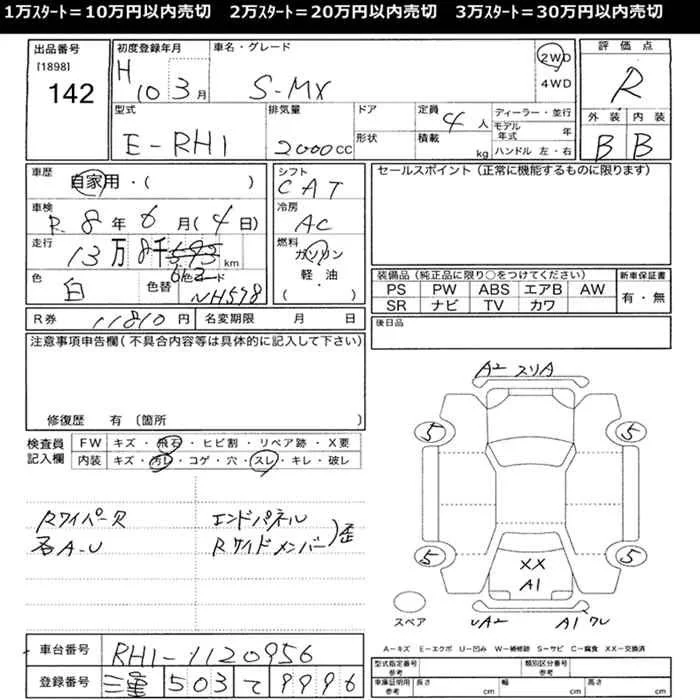 1万ｽﾀｰﾄ＝10万円以内売切　2万ｽﾀｰﾄ＝20万円以内売切　3万ｽﾀｰﾄ＝30万円以内売切
出品番号 [1898] 142
初度登録年月 H 10 3月
車名・グレード S-MX
2WD
4WD
評価点 R
外装 内装
B B
型式 E-RH1
排気量 2000cc
ドア
形状
定員 4人
積載 kg
ディーラー・並行
モデル年式 年
ハンドル 左・右
車歴 自家用・( )
車検 R 8年 6月(4日)
走行 13万8千 593 km
612
色 白 色替 色コード NH578
シフト CAT
冷房 AC
燃料 ガソリン
軽・油
( ・ )
セールスポイント（正常に機能するものに限ります）
装備品（純正品に限り○をつけてください）
PS PW ABS エアB AW
SR ナビ TV カワ
新車保証書
有・無
後日品
R券 11810円 名変期限 月 日
注意事項申告欄(不具合内容等は具体的に記入して下さい)
修復歴 有 〔箇所 〕
検査員記入欄
FW キズ・飛石・ヒビ割・リペア跡・X要
内装 キズ・汚レ・コゲ・穴・スレ・キレ・破レ
Rワイパー欠
各A-U
エンドパネル
Rサイドメンバー
)歪
A2 スリA
5 5
5 5
XX
A1
UA2 A1 ワレ
スペア
A－キズ E－エクボ U－凹み W－補修跡 S－サビ C－腐食 XX－交換済
車台番号 RH1-1120956
登録番号 三重 503 て 9996
型式指定番号 参考
類別区分番号 参考
車庫証明用 参考 長さ cm 幅 cm 高さ cm